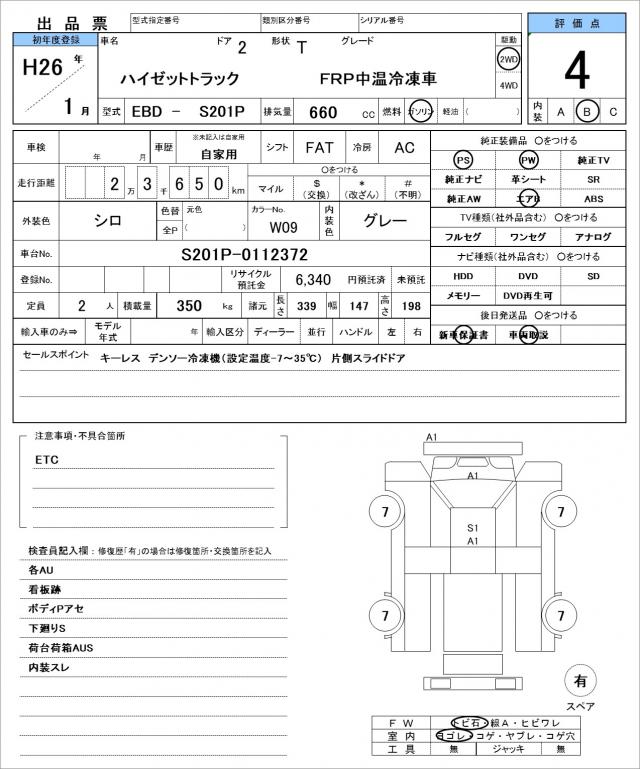 出品票 型式指定番号 類別区分番号 シリアル番号 評価点
初年度登録 車名 ドア 2 形状 T グレード 駆動
H26 年 ハイゼットトラック FRP中温冷凍車 2WD 4
4WD
1 月 型式 EBD - S201P 排気量 660 cc 燃料 ガソリン 軽油 ( ) 内装 A B C
車検 年 月 車歴 ※未記入は自家用 自家用 シフト FAT 冷房 AC 純正装備品 〇をつける
PS PW 純正TV
走行距離 2 万 3 千 6 5 0 km 〇をつける
マイル $ (交換) * (改ざん) # (不明)
純正ナビ 革シート SR
純正AW エアB ABS
外装色 シロ 色替 元色 カラーNo. 内装色 グレー
全P ( ) W09
TV種類(社外品含む) 〇をつける
フルセグ ワンセグ アナログ
車台No. S201P-0112372 ナビ種類(社外品含む) 〇をつける
登録No. リサイクル預託金 6,340 円預託済 未預託 HDD DVD SD
定員 2 人 積載量 350 kg 諸元 長さ 339 幅 147 高さ 198 メモリー DVD再生可
後日発送品 〇をつける
輸入車のみ⇒ モデル年式 年 輸入区分 ディーラー 並行 ハンドル 左 右 新車保証書 車両取説
セールスポイント キーレス デンソー冷凍機(設定温度-7〜35℃) 片側スライドドア
注意事項・不具合箇所
ETC
検査員記入欄:修復歴「有」の場合は修復箇所・交換箇所を記入
各AU
看板跡
ボディPアセ
下廻りS
荷台荷箱AUS
内装スレ
A1
A1
7 7
S1
A1
7 7
有
スペア
FW トビ石・線A・ヒビワレ
室内 ヨゴレ・コゲ・ヤブレ・コゲ穴
工具 無 ジャッキ 無